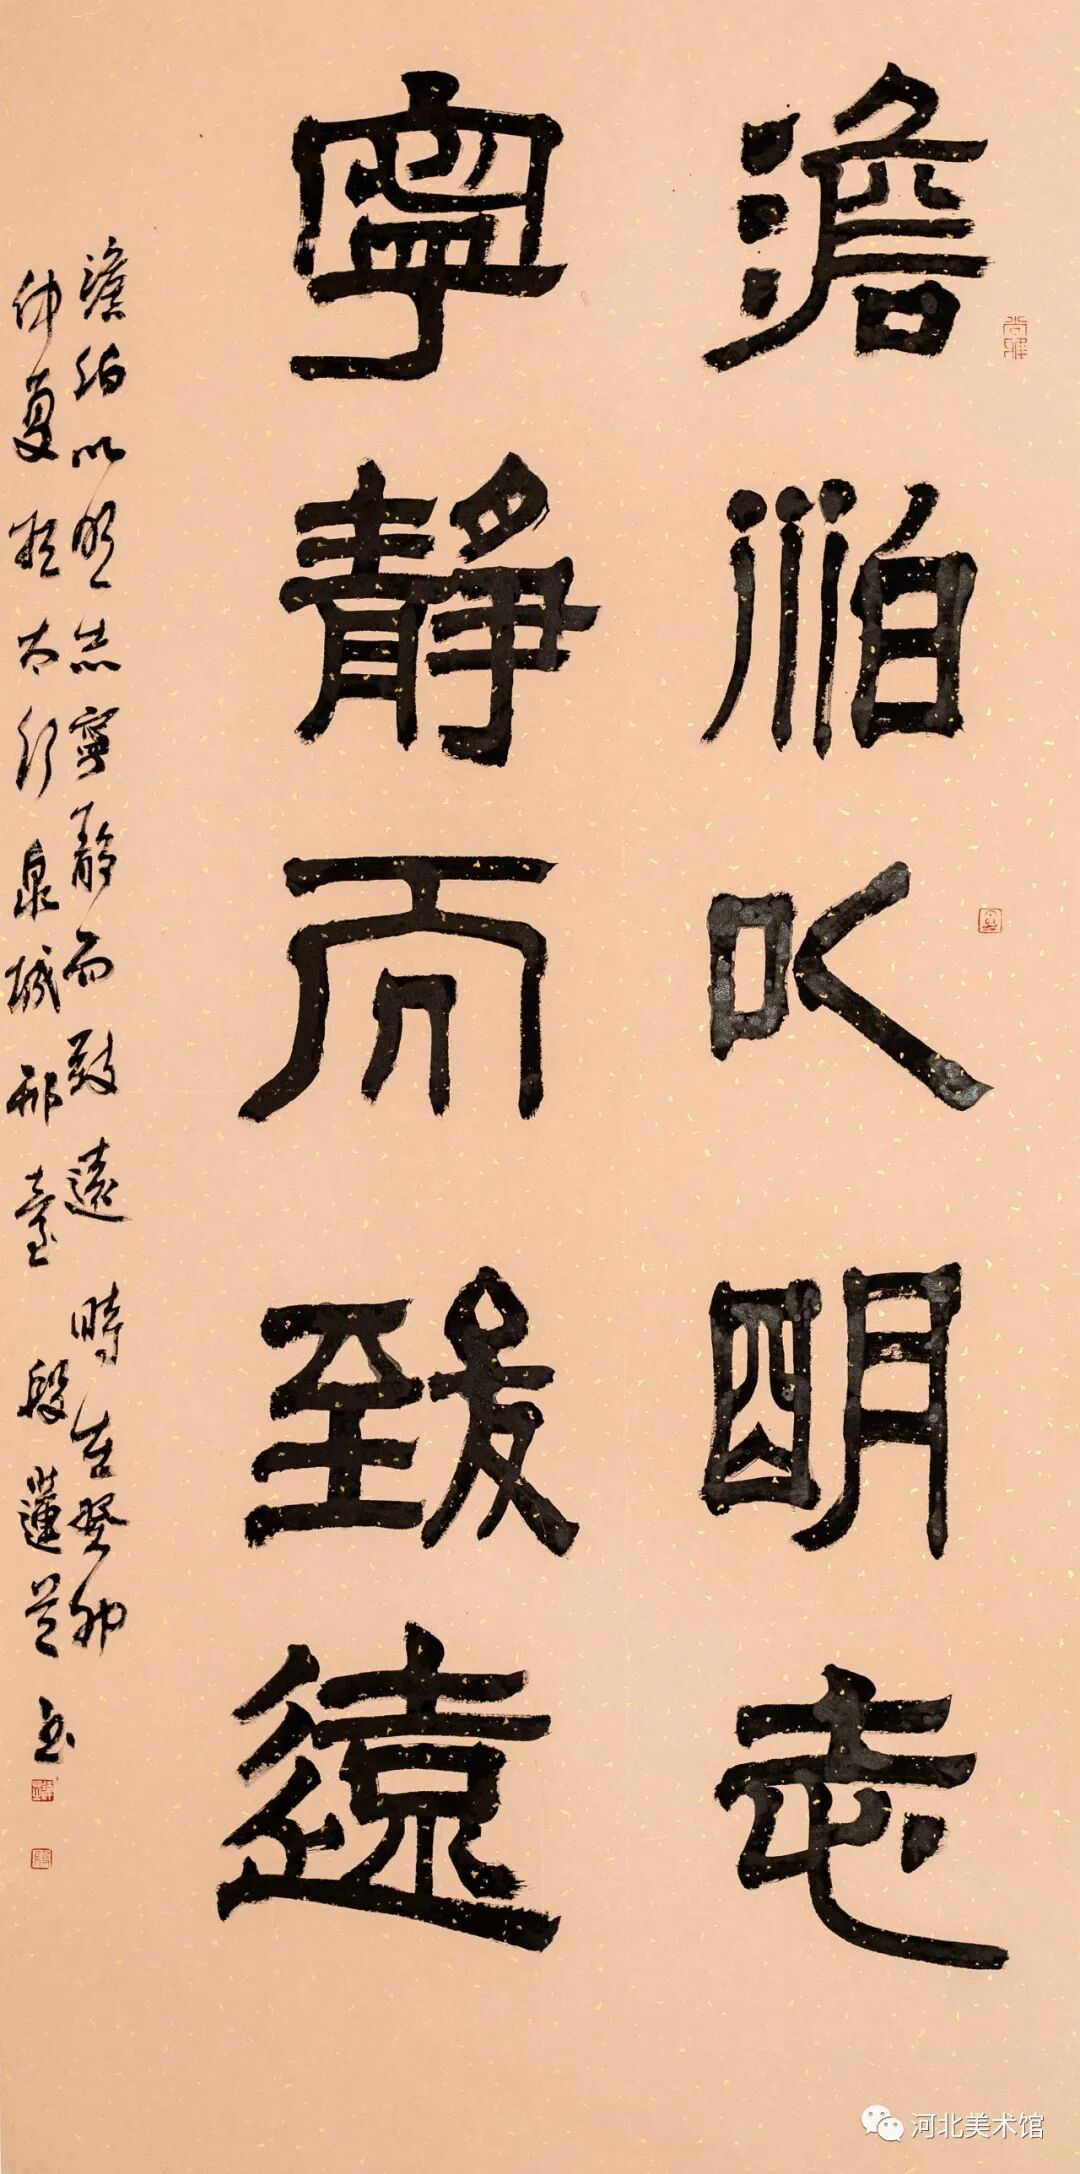 澹泊以明志
寧靜而致遠
澹泊以明志寧靜而致遠 時在癸卯
仲夏於太行泉城邢臺 段蓮芝書
尚雅
河北美术馆